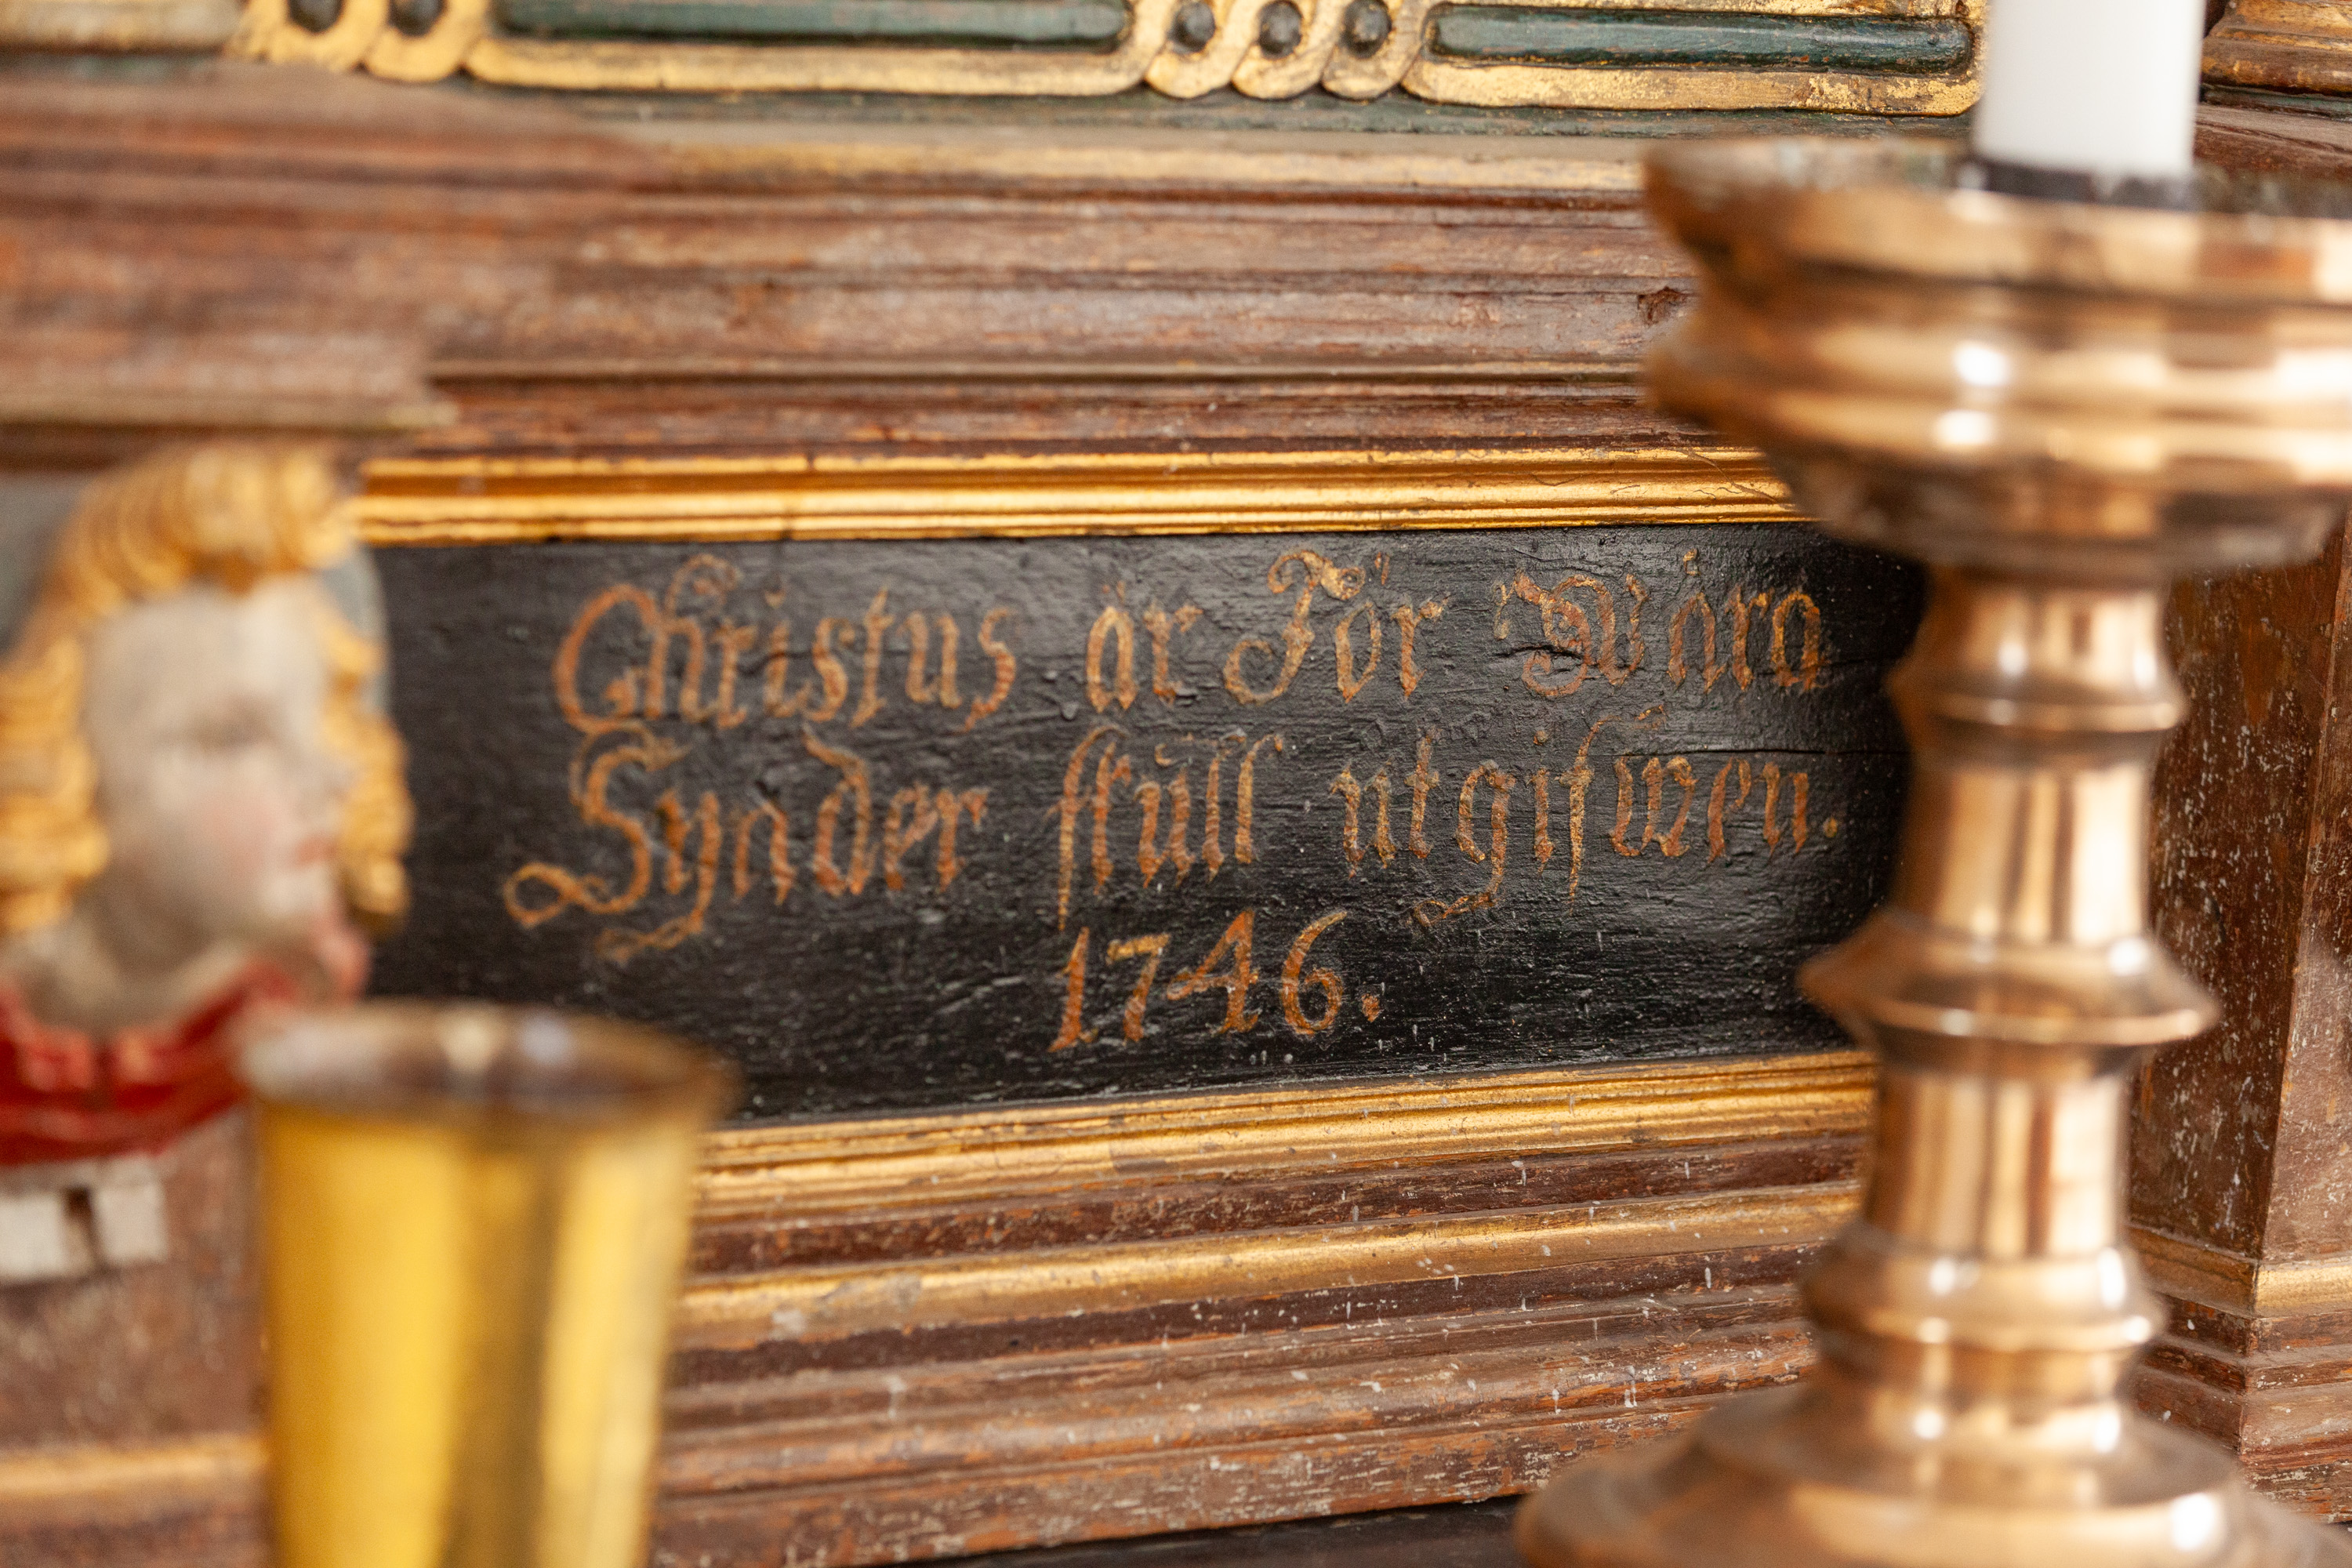 Christus är För Wåra
Synder skull utgifwen.
1746.